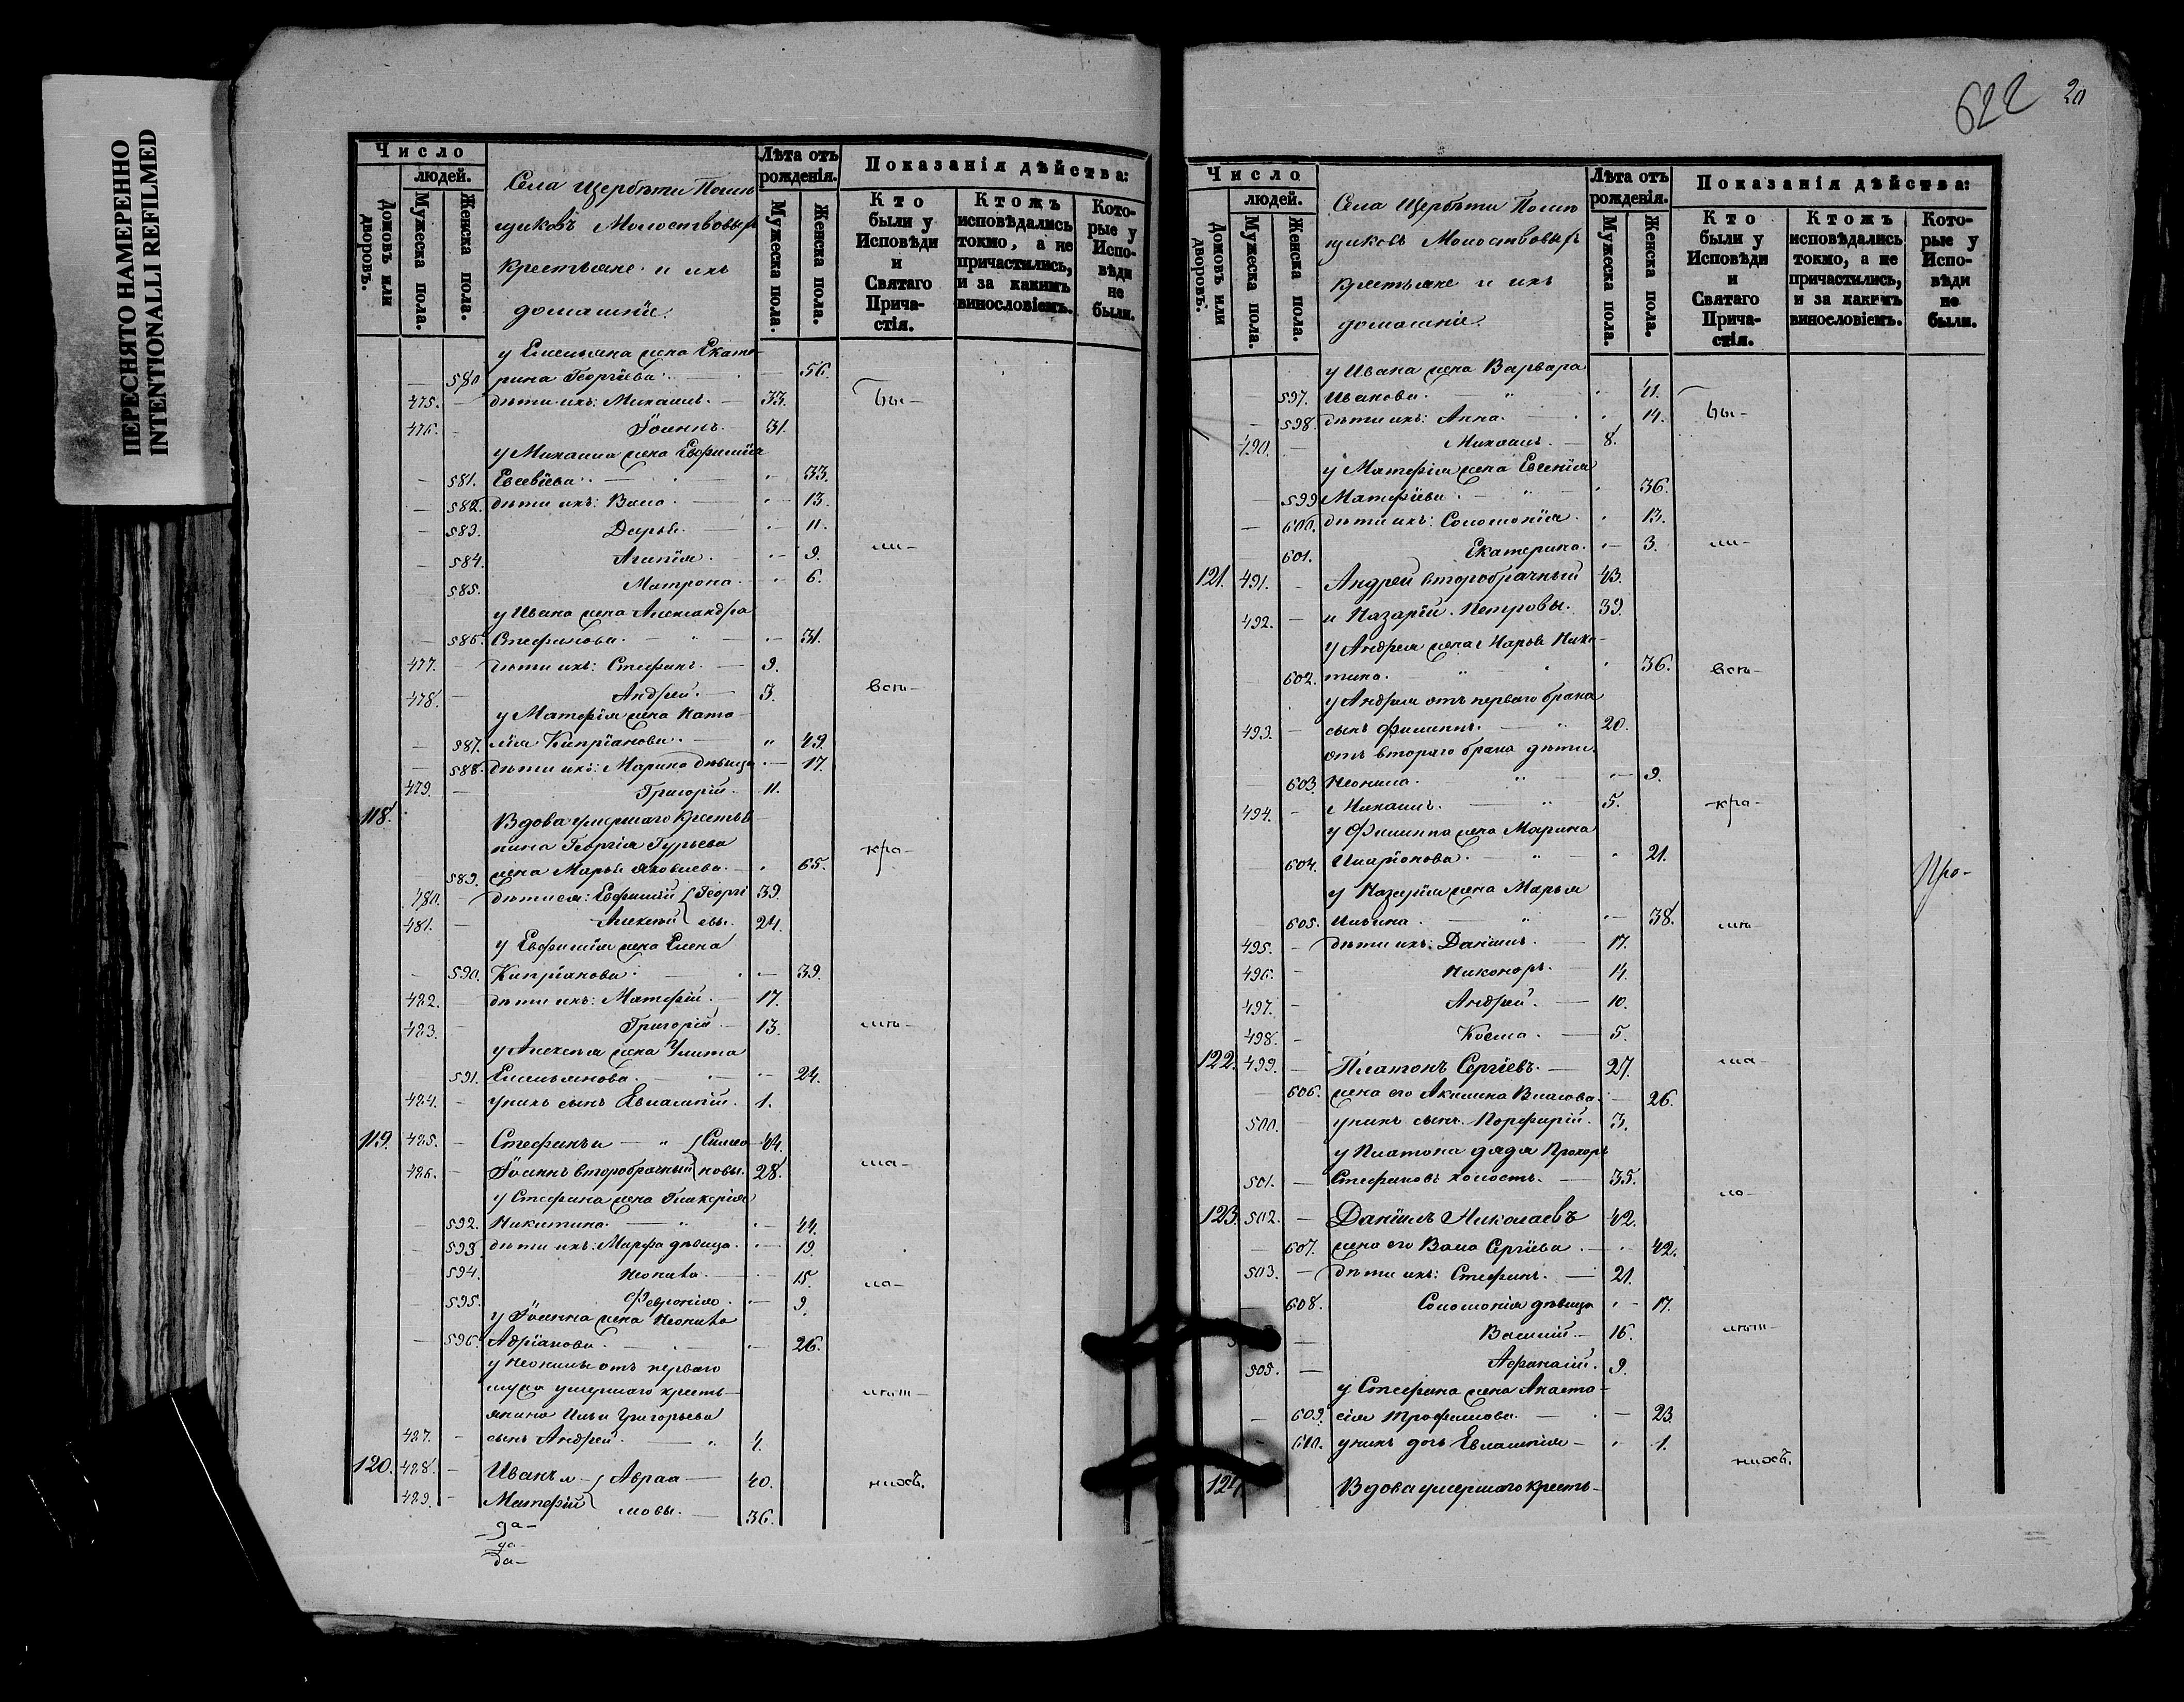 ПЕРЕСНЯТО НАМЕРЕННО
INTENTIONALLI REFILMED
Число
людей.
Домовъ или дворовъ.
Мужеска пола.
Женска пола.
Села Щербѣти Помѣ
щиковъ Молоствовыхъ
крестьяне и ихъ
домашніе.
Лѣта отъ рожденія.
Мужеска пола.
Женска пола.
Показанія дѣйства:
Кто были у Исповѣди и Святаго Прича-стія.
Ктожъ исповѣдались токмо, а не причастились, и за какимъ винословіемъ.
Кото-рые у Испо-вѣди не были.
у Емельяна жена Екате-
— 580 рина Георгіева. — 56.
475. — дѣти ихъ: Михаилъ. — 33. Бы-
476. — Іоаннъ. 31.
у Михаила жена Евфимія
— 581. Евсевіева. — 33.
— 582. дѣти ихъ: Васса — 13.
— 583. Дарья. — 11.
— 584. Агапія. — 9. ли-
585. Матрона. — 6.
у Ивана жена Александра
— 586. Стефанова. — 31.
477. — дѣти ихъ: Стефанъ. — 9.
478. — Андрей. — 3. всѣ-
у Матфія жена Ната-
— 587. лія Кипріанова. — 49.
— 588. дѣти ихъ: Марина дѣвица — 17.
479. — Григорій. 11.
118. Вдова умершаго крестья-
нина Георгія Гурьева кра-
— 589. жена Марья Яковлева. — 65.
480. — дѣти ея: Евфимій Георгі 39.
481. — Алексѣй евы. 24.
у Евфимія жена Елена
— 590. Кипріанова. — 39.
482. — дѣти ихъ: Матфій. — 17.
483. — Григорій. — 13. мѣ-
у Алексѣя жена Улита
— 591. Емельянова. — 24.
484. — у нихъ сынъ Евлампій. 1.
119. 485. — Стефанъ и — " Симео- 44.
486. — Іоаннъ второбрачный новы. 28. ма-
у Стефана жена Гликерія
— 592. Никитина. — " — 44.
— 593 дѣти ихъ: Марфа дѣвица. — 19.
— 594. Неонила. — 15. ла-
— 595. Февронія. — 9.
у Іоанна жена Неонила
— 596. Адріанова. — 26.
у Неонилы отъ перваго
мужа умершаго кресть-
янина Ильи Григорьева
487. — сынъ Андрей. — " 4.
120. 488. — Иванъ и Авраа- 40. нихъ.
489. — Матфій мовы. — 36.
да-
да-
да-
622 20
Число
людей.
Домовъ или дворовъ.
Мужеска пола.
Женска пола.
Села Щербѣти Помѣ
щиковъ Молоствовыхъ
крестьяне и ихъ
домашніе.
Лѣта отъ рожденія.
Мужеска пола.
Женска пола.
Показанія дѣйства:
Кто были у Исповѣди и Святаго Прича-стія.
Ктожъ исповѣдались токмо, а не причастились, и за какимъ винословіемъ.
Кото-рые у Испо-вѣди не были.
у Ивана жена Варвара
— 597. Иванова. — " 41.
— 598. дѣти ихъ: Анна. — 14. Бы-
490. — Михаилъ. — 8.
у Матфія жена Евгенія
— 599 Матфіева. — " 36.
— 600. дѣти ихъ: Соломонія. 13.
601. Екатерина. — 3. ли-
121. 491. — Андрей второбрачный 43.
492. — и Назарій Петровы. 39.
у Андрея жена Марья Ники-
602. тина. " 36. всѣ-
у Андрея отъ перваго брака
493. — сынъ Филиппъ. — " 20.
отъ втораго брака дѣти
603. Неонила. " — 9.
494. — Михаилъ. — " 5. кра-
у Филиппа жена Марина
604. Иларіонова. — " 21.
Про-
у Назарія жена Марья
— 605. Ильина. — " — 38. мѣ-
495. — дѣти ихъ: Даніилъ. — 17.
496. — Никоноръ. — 14.
497. — Андрей. — 10.
498. — Косма. — 5.
122. 499. — Платонъ Сергіевъ. — 27. ма-
— 606. жена его Акилина Власова — 26.
500. — у нихъ сынъ Порфирій. 3.
у Платона дядя Прохоръ
501. — Стефановъ холостъ. — 35. ло-
123. 502. — Даніилъ Николаевъ 42.
— 607. жена его Васса Сергіева — 42.
503. — дѣти ихъ: Стефанъ. — 21.
608. Соломонія дѣвица — 17.
— Василій. — 16.
505. — Афанасій. 9.
у Стефана жена Анаста-
— 609. сія Трофимова. — 23
— 610. у нихъ дочь Евлампія — 1.
нихъ.
124. Вдова умершаго кресть-